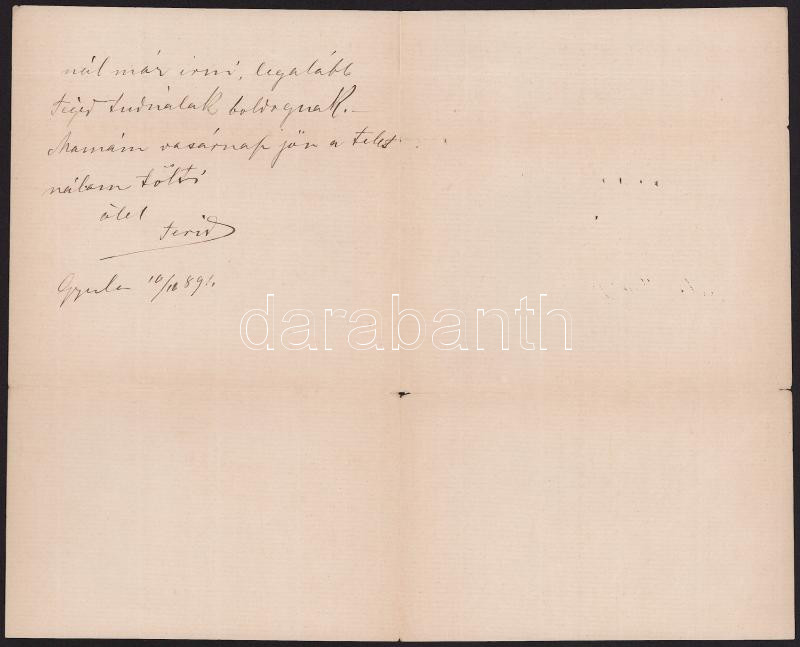 nál már irni, legalább
Téged tudnálak boldognak.—
Mamám vasárnap jön a telet
nálam tölti
ölel
Ferid
Gyula 10/10 891.
darabanth